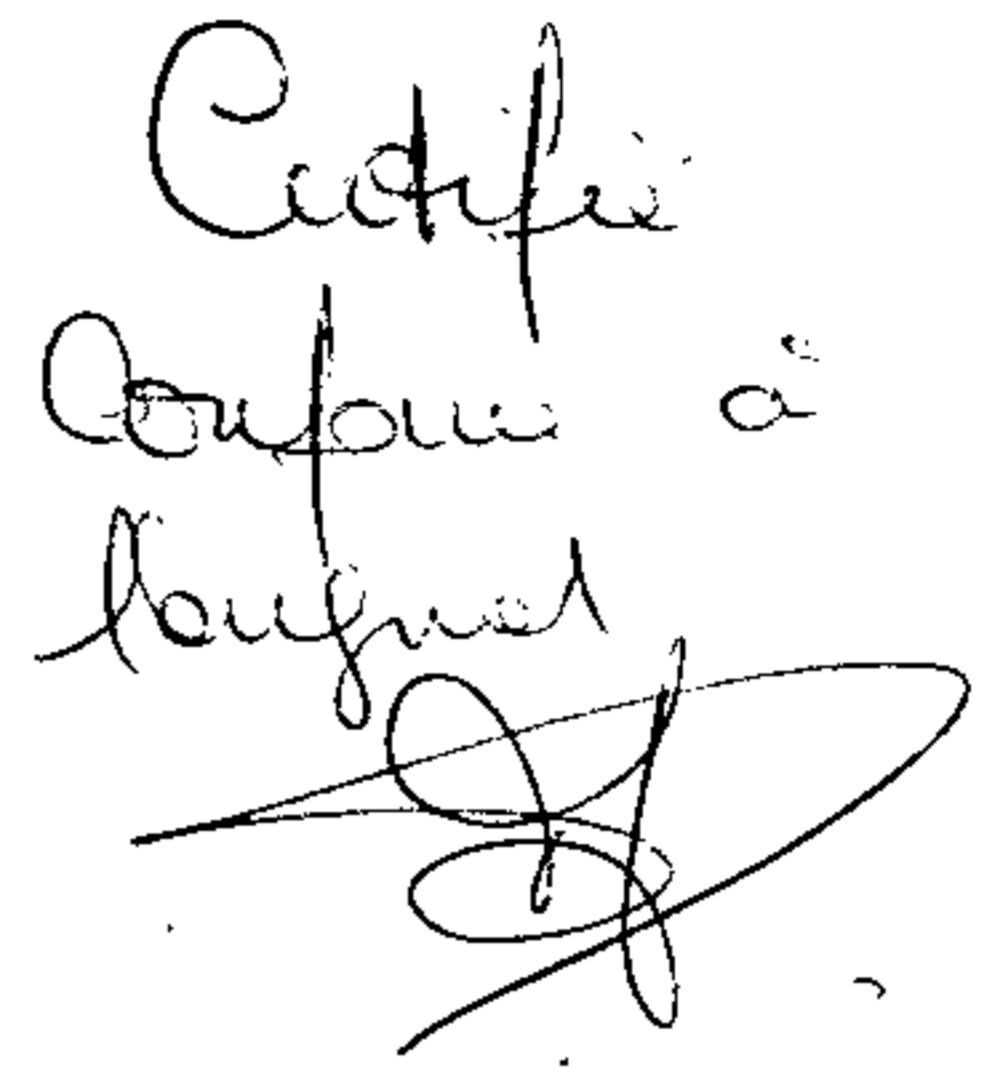 Certifié
Conforme à
l'original